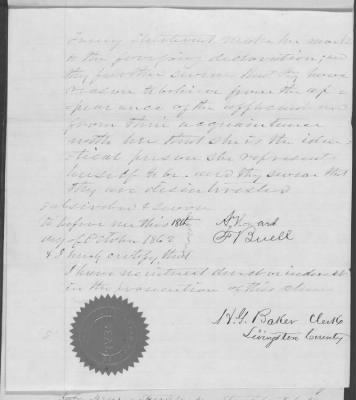 make her mark
to the foregoing declaration; and
they further swear that they have
reason to believe from the ap
pearance of the applicant and
from their acquaintance
with her that she is the iden
tical person she represents
herself to be. and they swear that
they are disinterested
subscribed & sworn
to before me this 18th
day of October 1862
& I hereby certify that
I have no interest direct or indirect
in the prosecution of this claim
A
F Buell
H. G. Baker Clerk
Livingston County